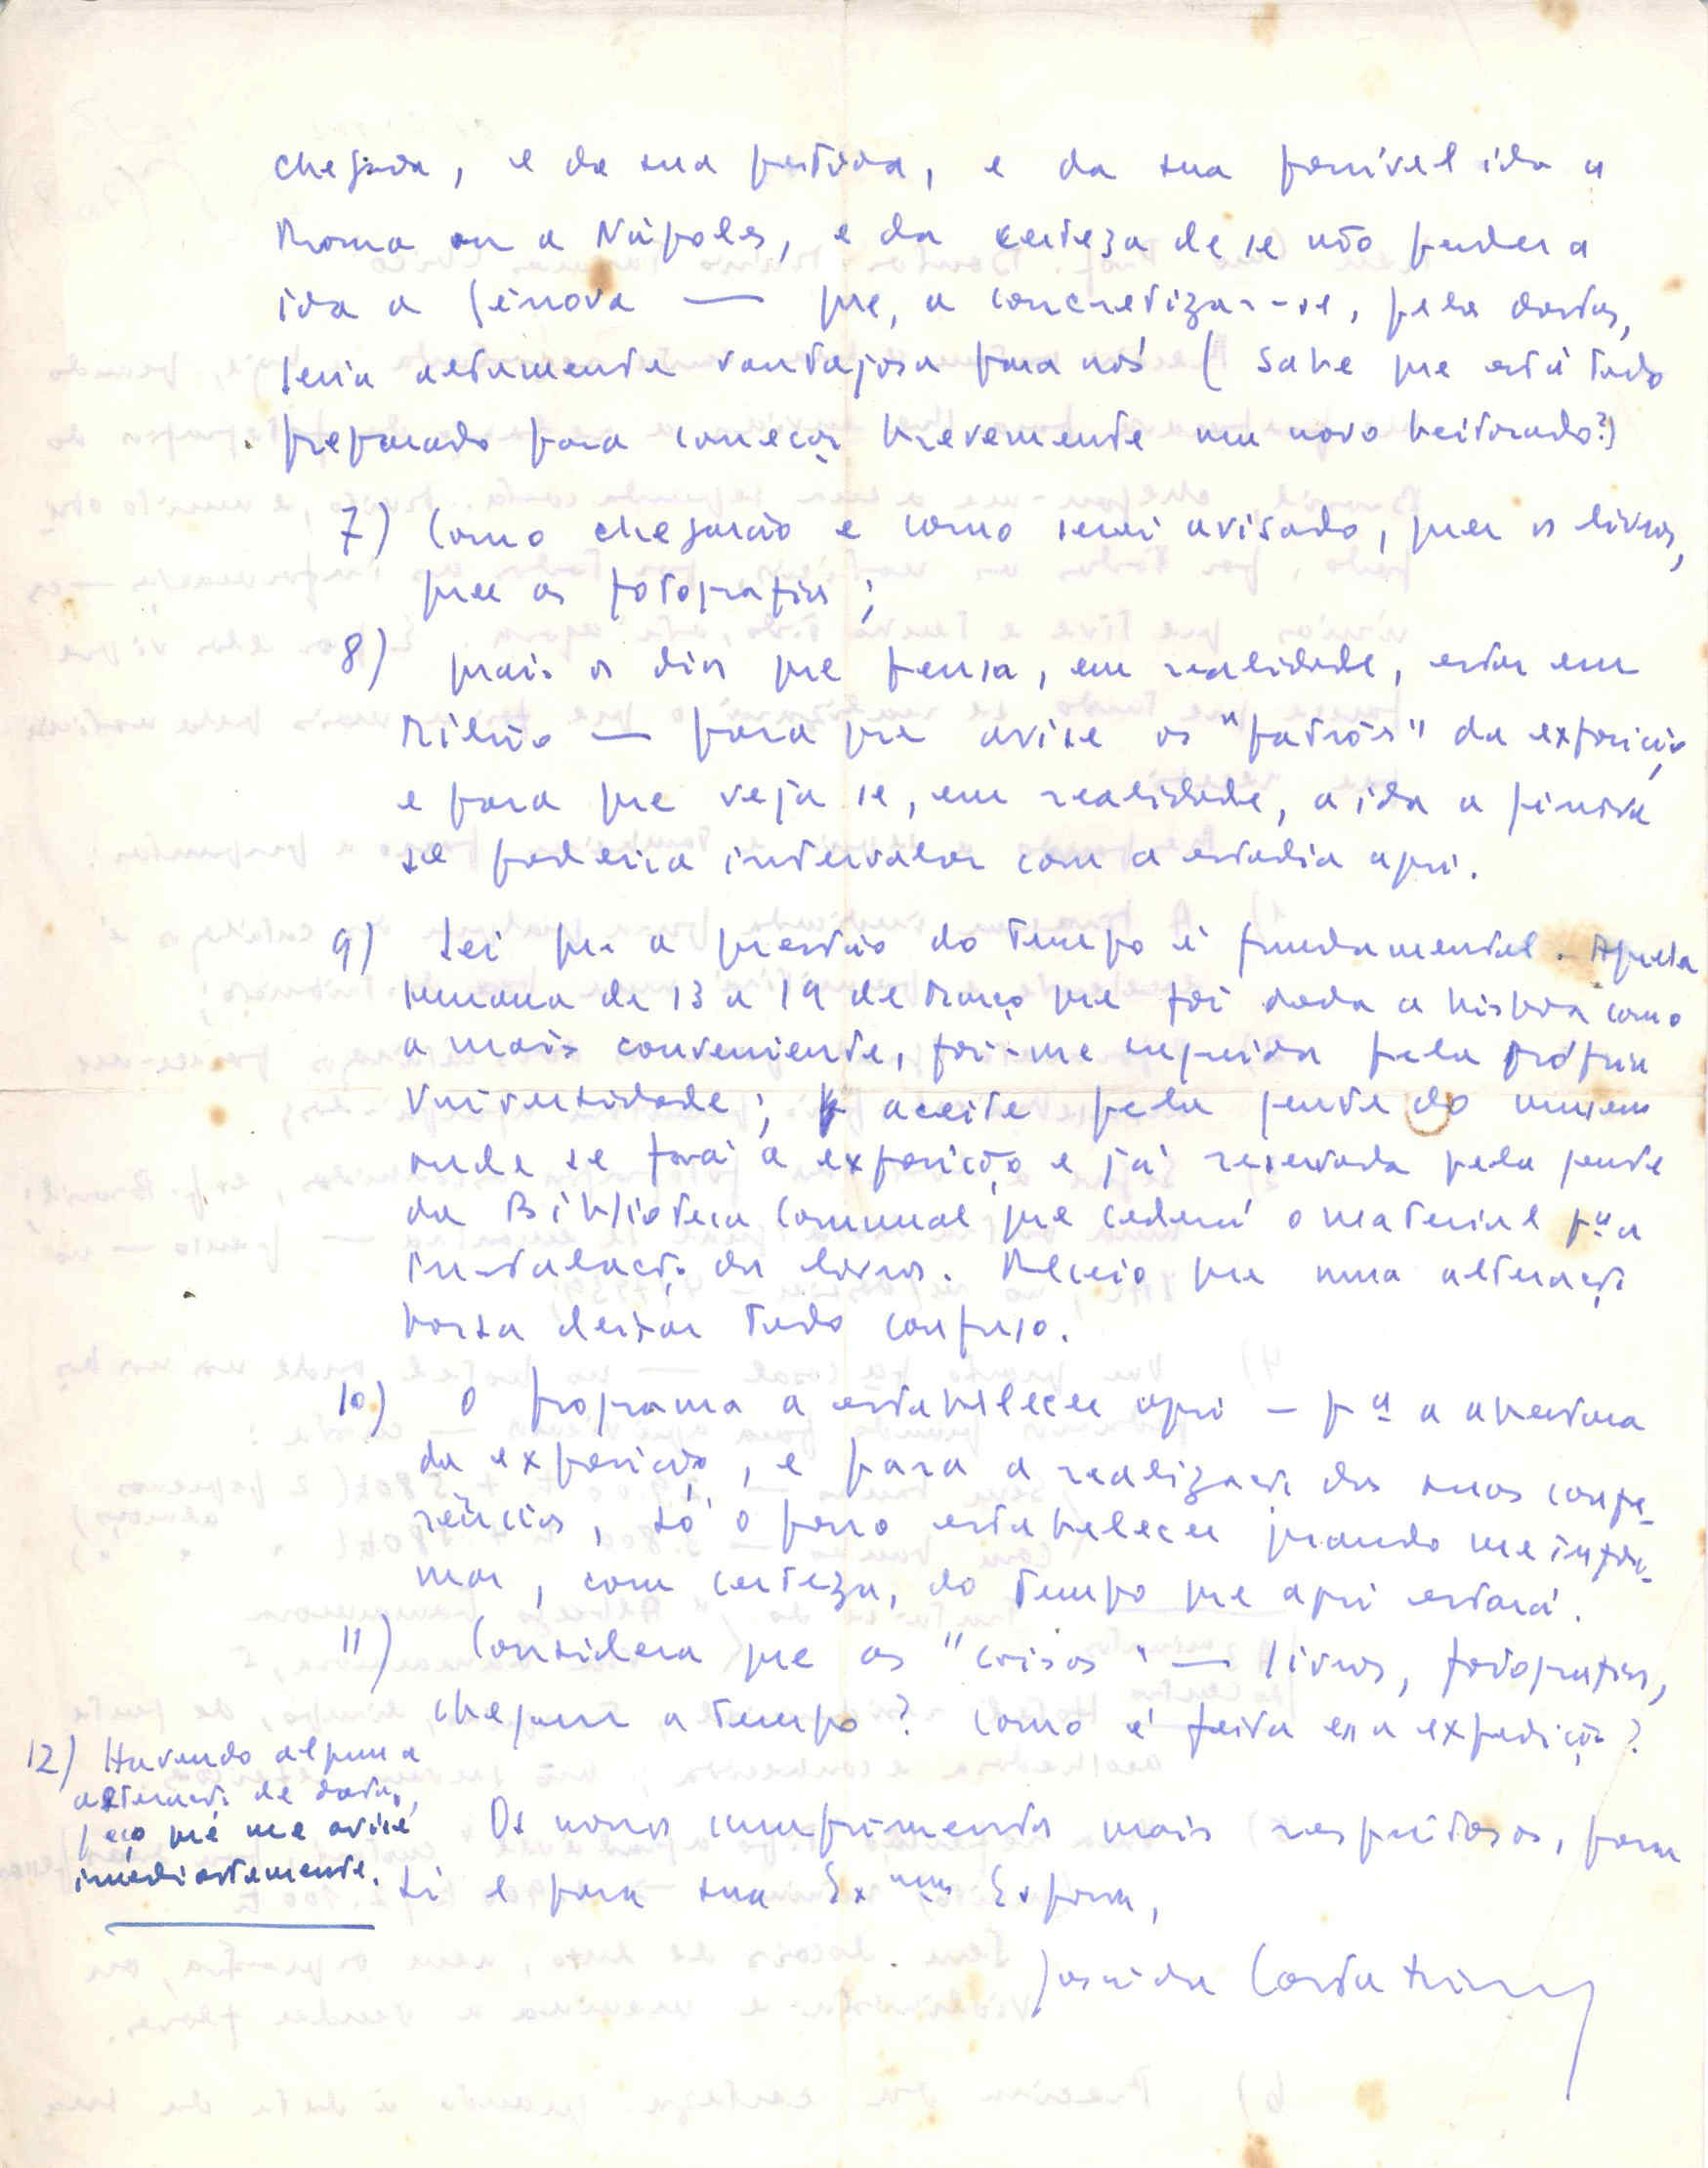 chegada, e da sua partida, e da sua possível ida a
Roma ou a Nápoles, e da certeza de se não perder a
ida a Génova — que, a concretizar-se, pelas datas,
seria altamente vantajosa para nós (Sabe que está tudo
preparado para começar brevemente um novo leitorado?)
7) Como chegarão e como serei avisado, quer os livros,
quer as fotografias;
8) quais os dias que pensa, em realidade, estar em
Milão — para que avise os "patrões" da exposição
e para que veja se, em realidade, a ida a Génova
se poderia intervalar com a estadia aqui.
9) Sei que a questão do tempo é fundamental. Aquela
semana de 13 a 19 de Março que foi dada a Lisboa como
a mais conveniente, foi-me sugerida pela própria
Universidade; aceite pela gente do museu
onde se fará a exposição e já reservada pela gente
da Biblioteca Comunal que cederá o material pª a
instalação dos livros. Receio que uma alteração
possa deixar tudo confuso.
10) O programa a estabelecer aqui – pª a abertura
da exposição, e para a realização das suas confe-
rências, só o posso estabelecer quando me infor-
mar, com certeza, do tempo que aqui estará.
11) Considera que as "coisas" — livros, fotografias,
chegam a tempo? Como é feita essa expedição?
12) Havendo alguma
alteração de datas,
peço que me avise
imediatamente.
Os nossos cumprimentos mais respeitosos, para
si e para sua Exma Esposa,
Costa